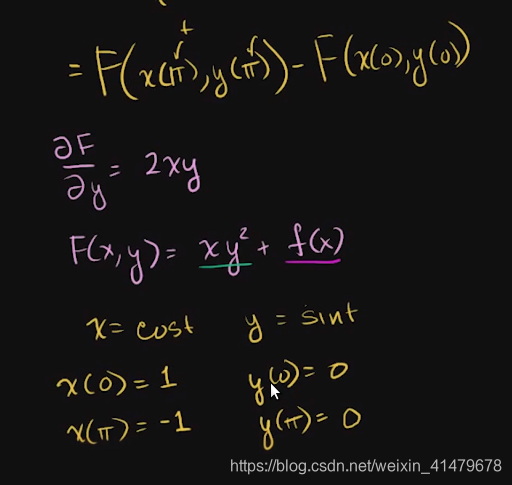 = F(x(π), y(π)) - F(x(0), y(0))
∂F/∂y = 2xy
F(x,y) = xy² + f(x)
x = cost y = sint
x(0) = 1 y(0) = 0
x(π) = -1 y(π) = 0
https://blog.csdn.net/weixin_41479678